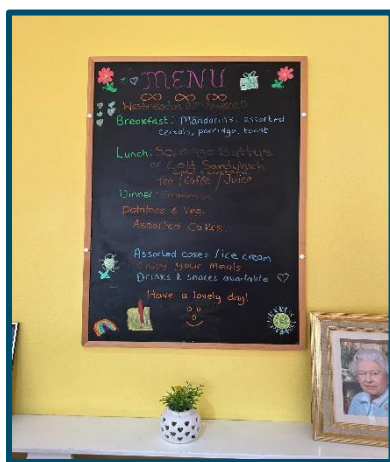 MENU
Wednesday
Breakfast: Mandarins, assorted
cereals, porridge, toast
Lunch: Sausage Buttys
or Cold Sandwich
Tea / Coffe / Juice
Dinner:
potatoes & Veg.
Assorted Cakes.
Assorted cakes / ice cream
Enjoy your Meals
Drinks & snacks available
Have a lovely day!